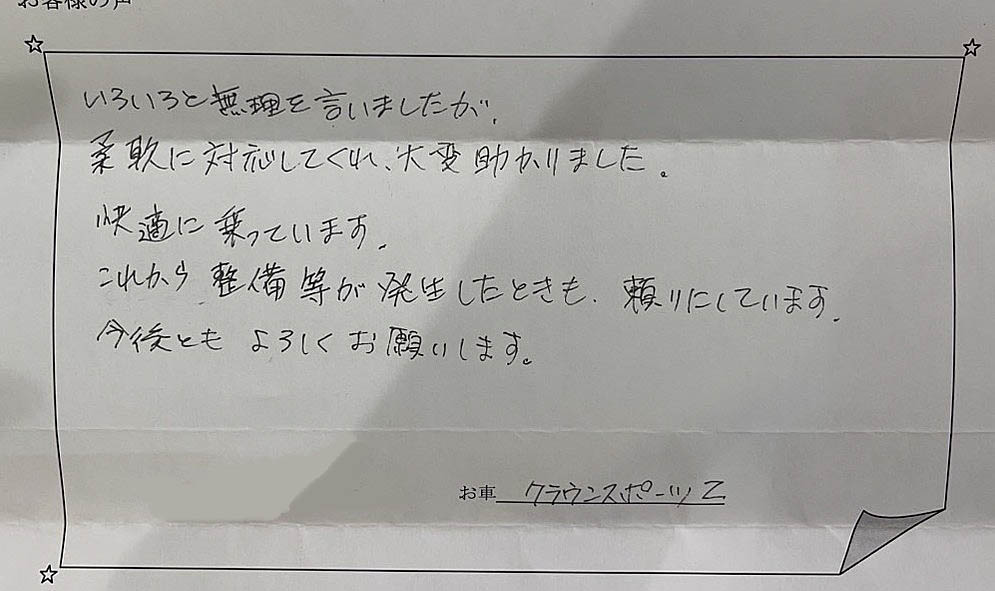 お客様の声
いろいろと無理を言いましたが、
柔軟に対応してくれ、大変助かりました。
快適に乗っています。
これから整備等が発生したときも、頼りにしています。
今後ともよろしくお願いします。
お車 クラウンスポーツZ